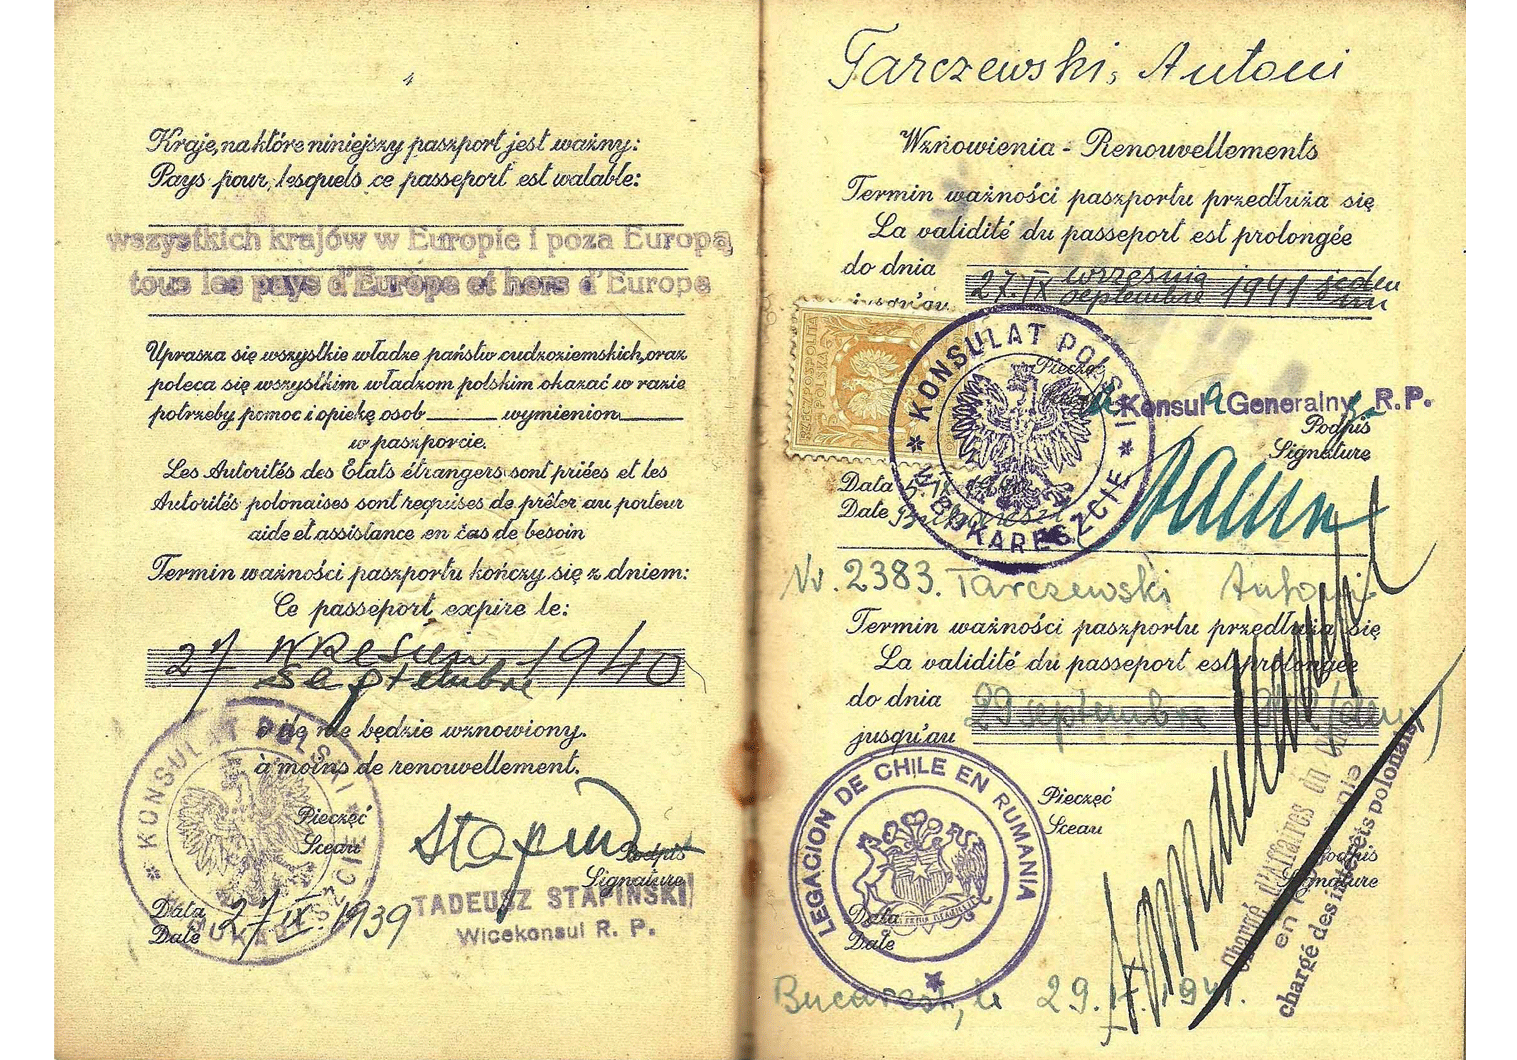 4
Kraje, na które niniejszy paszport jest ważny:
Pays pour lesquels ce passeport est walable:
wszystkich krajów w Europie i poza Europą
tous les pays d'Europe et hors d'Europe
Uprasza się wszystkie władze państw cudzoziemskich, oraz
poleca się wszystkim władzom polskim okazać w razie
potrzeby pomoc i opiekę osob____ wymienion____
w paszporcie.
Les Autorités des Etats étrangers sont priées et les
Autorités polonaises sont requises de prêter au porteur
aide et assistance en cas de besoin
Termin ważności paszportu kończy się z dniem:
Ce passeport expire le:
27 września 1940
septembre
o ile nie będzie wznowiony.
à moins de renouvellement.
KONSULAT POLSKI
W BUKARESZCIE
Pieczęć
Sceau
Podpis
Signature
TADEUSZ STAPIŃSKI
Wicekonsul R. P.
Data
Date
27 IX. 1939
Tarczewski, Antoni
Wznowienia - Renouvellements
Termin ważności paszportu przedłuża się
La validité du passeport est prolongée
do dnia
jusqu'au
27. IX września 1941 jeden
septembre
RZECZPOSPOLITA
POLSKA
KONSULAT POLSKI
W BUKARESZCIE
Pieczęć
Konsul Generalny R. P.
Podpis
Signature
Data
Date
Nr. 2383. Tarczewski Antoni
Termin ważności paszportu przedłuża się
La validité du passeport est prolongée
do dnia
jusqu'au
29 septembre
LEGACION DE CHILE EN RUMANIA
Pieczęć
Sceau
Podpis
Signature
Chargé d'Affaires du Chili
en Roumanie
chargé des intérêts polonais
Data
Date
Bucarest, le 29. IX. 1941.